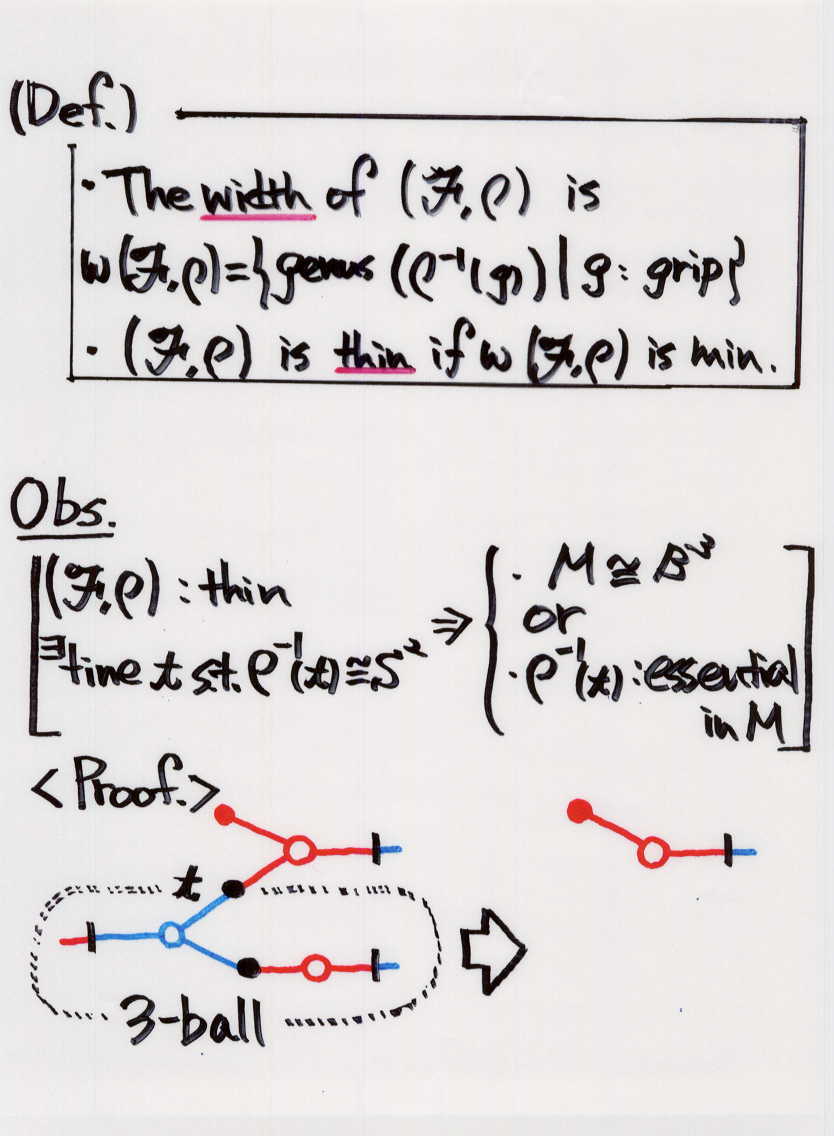 (Def.)
・The width of (ℱ,ρ) is
w(ℱ,ρ)={genus(ρ⁻¹(g))|g: grip}
・(ℱ,ρ) is thin if w(ℱ,ρ) is min.
Obs.
(ℱ,ρ): thin
∃tine t s.t. ρ⁻¹(t)≅S²
⇒
・M≅B³
or
・ρ⁻¹(t): essential
in M
<Proof.>
t
3-ball